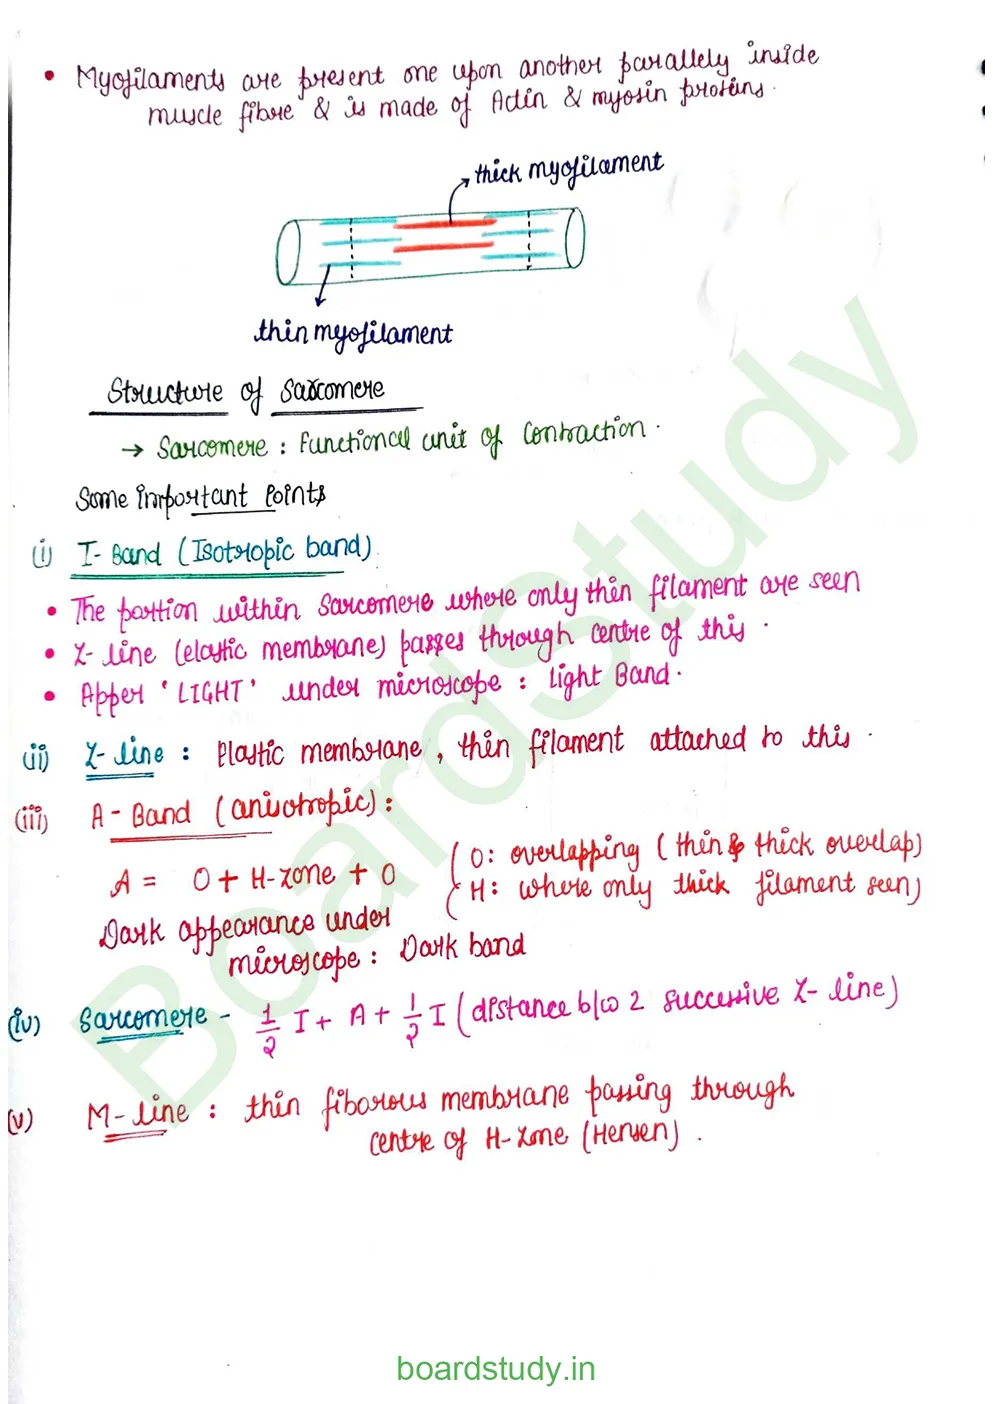 • Myofilaments are present one upon another parallely inside
muscle fibre & is made of Actin & myosin proteins.
thick myofilament
thin myofilament
Structure of Sarcomere
→ Sarcomere : Functional unit of Contraction.
Some important Points
(i) I-Band (Isotropic band)
• The portion within sarcomere where only thin filament are seen
• Z-line (elastic membrane) passes through centre of this.
• Apper 'LIGHT' under microscope : light Band.
(ii) Z-line : Elastic membrane, thin filament attached to this.
(iii) A-Band (anisotropic) :
A = O + H-zone + O
( O: overlapping (thin & thick overlap)
H: where only thick filament seen)
Dark appearance under
microscope : Dark band
(iv) Sarcomere - 1/2 I + A + 1/2 I (distance b/w 2 successive Z-line)
(v) M-line : thin fiborous membrane passing through
centre of H-zone (Hensen).
BoardStudy
boardstudy.in